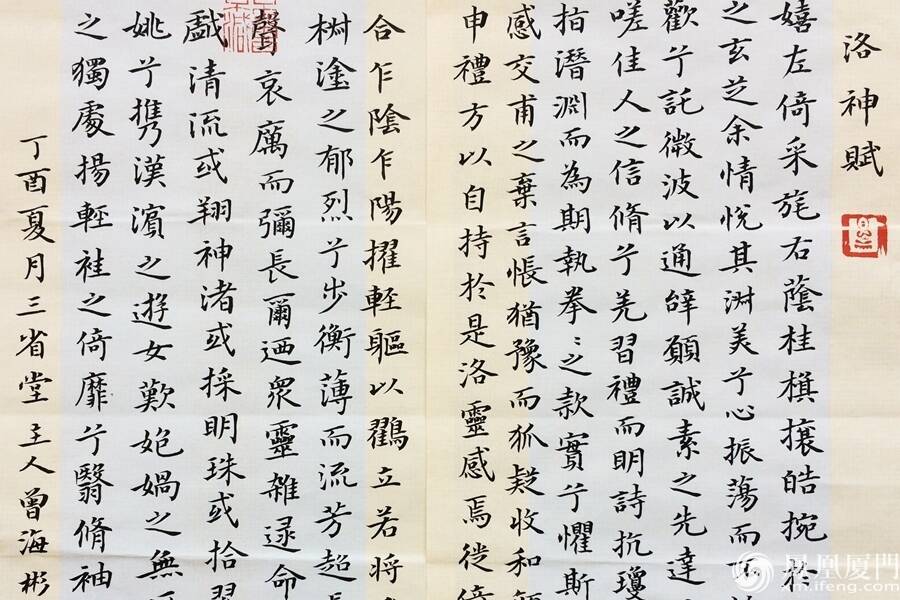 洛神賦
嬉左倚采旄右蔭桂旗攘皓捥於
之玄芝余情悅其淑美兮心振蕩而不
歡兮託微波以通辭願誠素之先達
嗟佳人之信脩兮羌習禮而明詩抗瓊
指潛淵而為期執拳〻之款實兮懼斯
感交甫之棄言悵猶豫而狐疑收和顏
申禮方以自持於是洛靈感焉徙倚
合乍陰乍陽擢輕軀以鸛立若將
椒塗之郁烈兮步衡薄而流芳超長
聲哀厲而彌長爾迺眾靈雜遝命
戲清流或翔神渚或採明珠或拾翠
姚兮攜漢濱之遊女歎匏媧之無
之獨處揚輕袿之倚靡兮翳脩袖
丁酉夏月三省堂主人曾海彬
鳳凰厦門
xm.ifeng.com